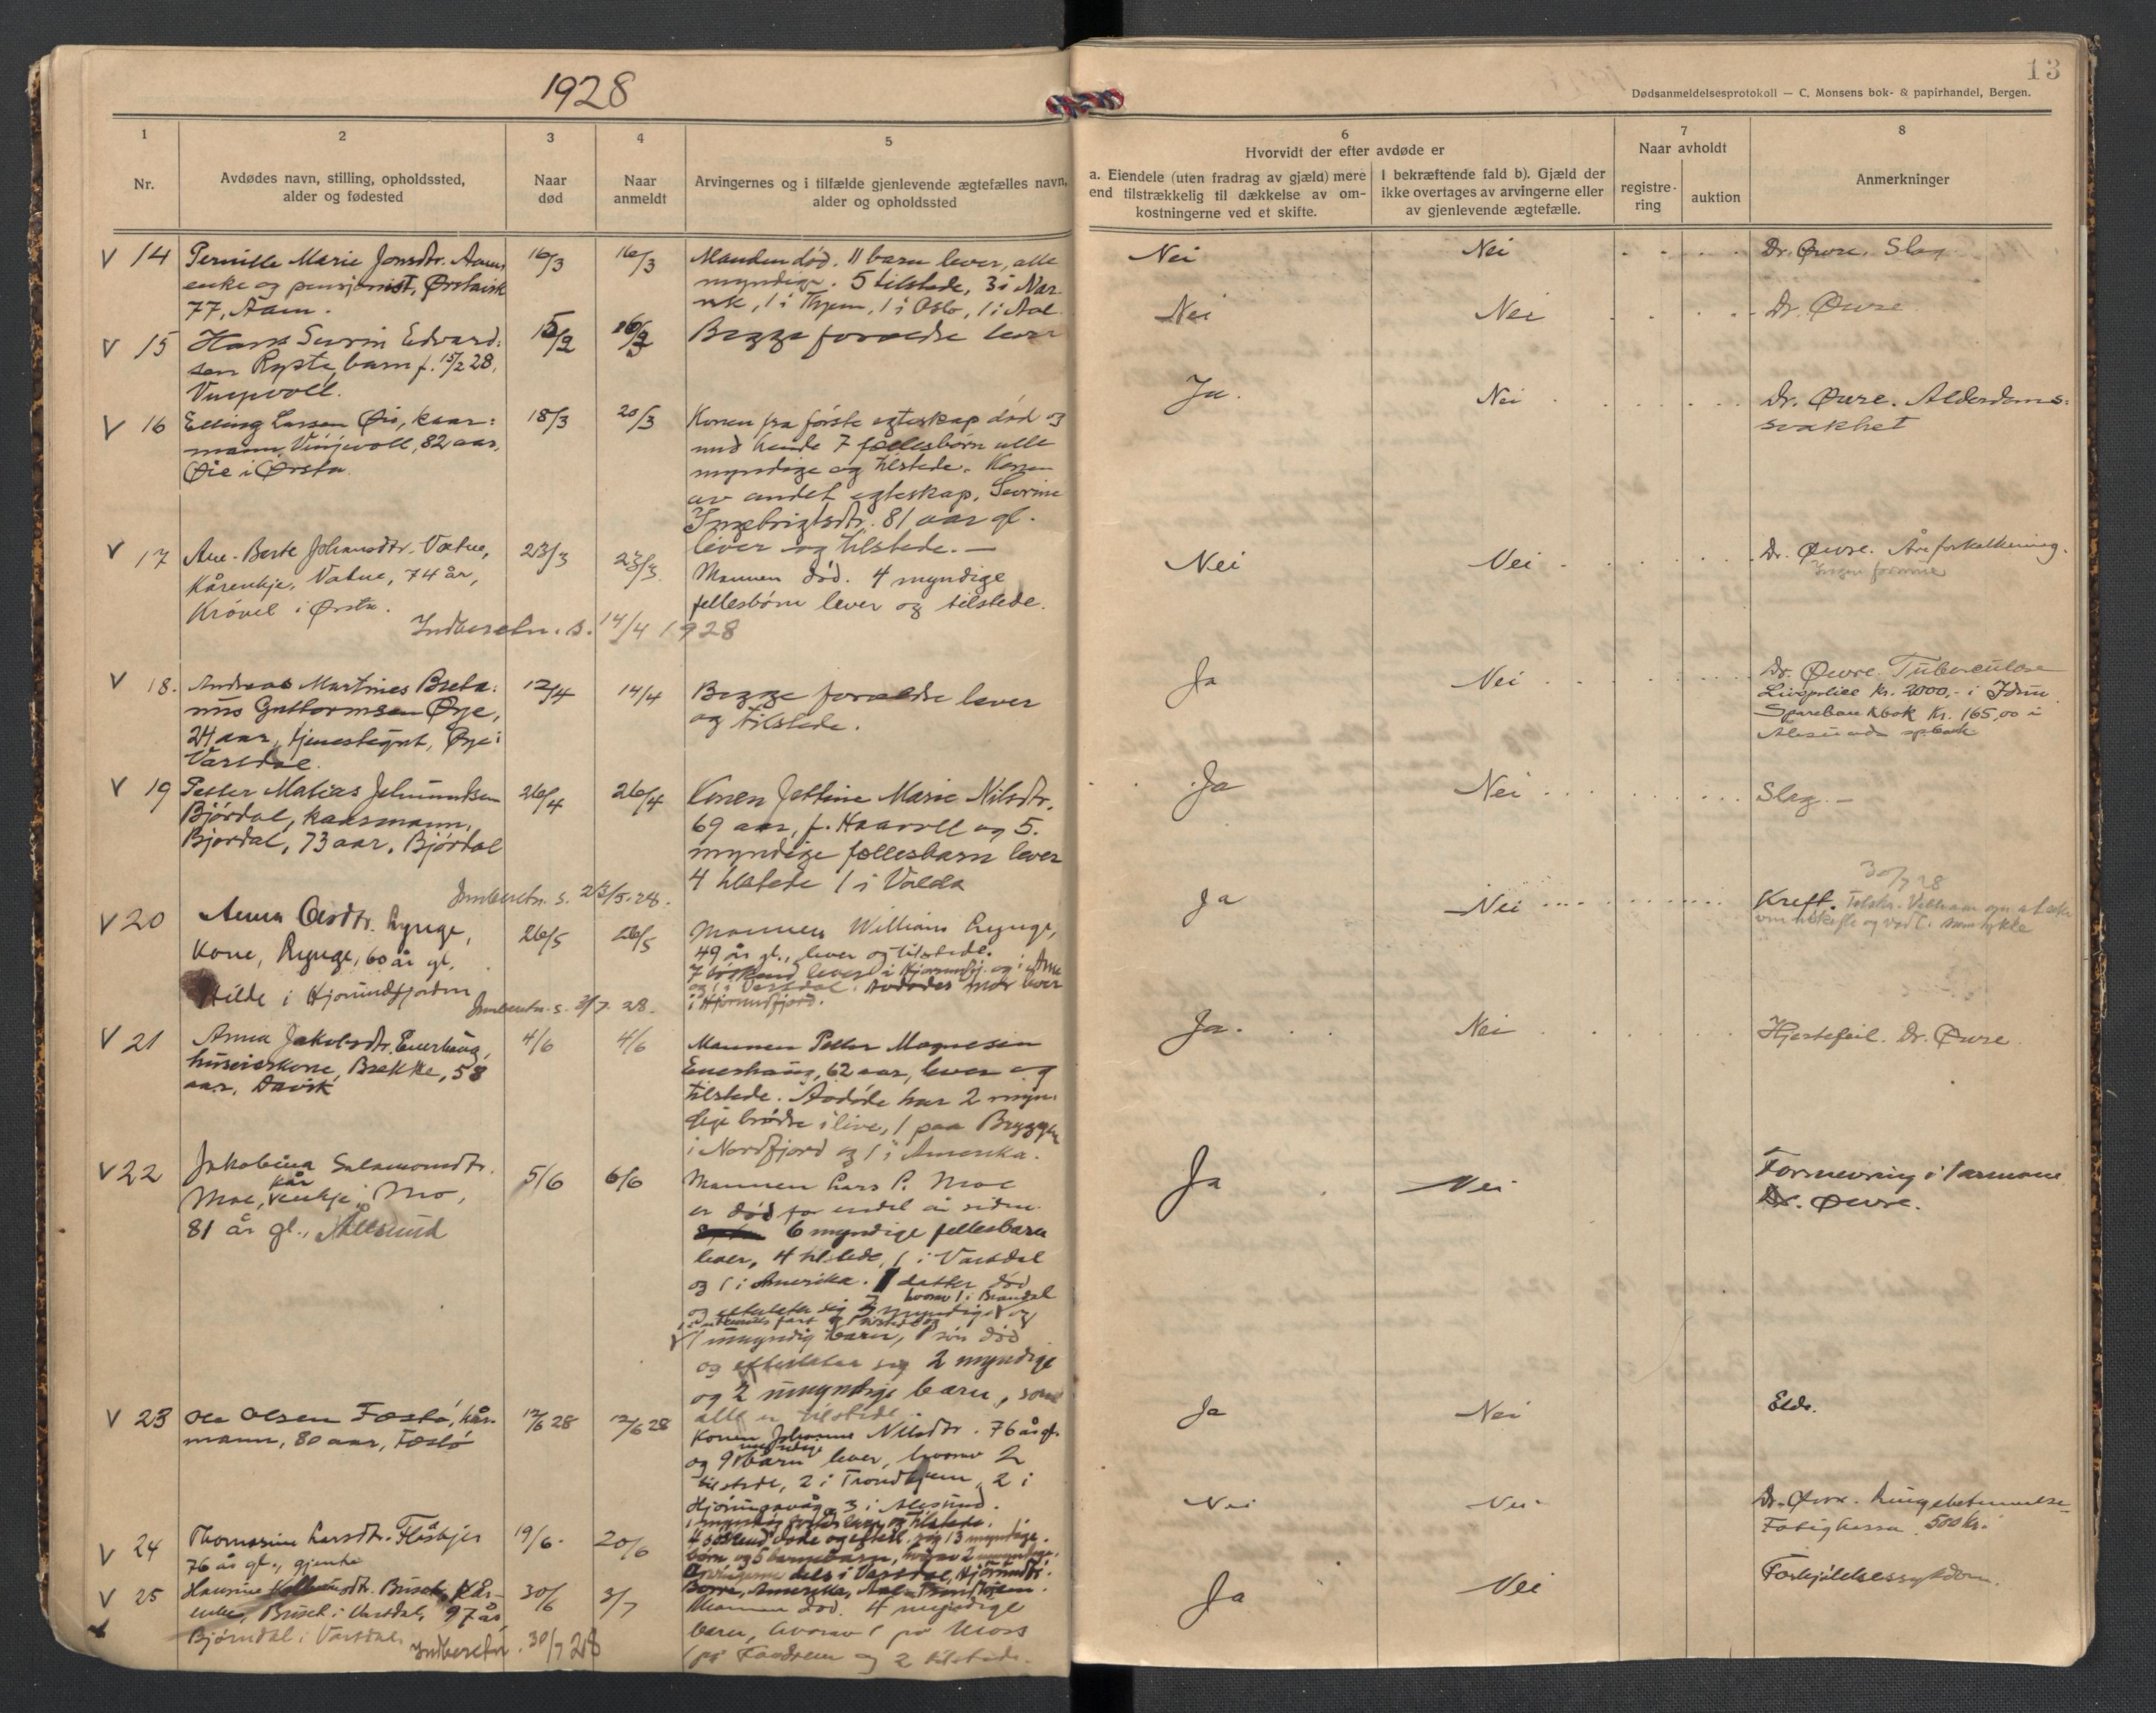 1928
13
Dødsanmeldelsesprotokoll — C. Monsens bok- & papirhandel, Bergen.
1
Nr.
2
Avdødes navn, stilling, opholdssted,
alder og fødested
3
Naar
død
4
Naar
anmeldt
5
Arvingernes og i tilfælde gjenlevende ægtefælles navn,
alder og opholdssted
6
Hvorvidt der efter avdøde er
a. Eiendele (uten fradrag av gjæld) mere
end tilstrækkelig til dækkelse av om-
kostningerne ved et skifte.
I bekræftende fald b). Gjæld der
ikke overtages av arvingerne eller
av gjenlevende ægtefælle.
7
Naar avholdt
registre-
ring
auktion
8
Anmerkninger
V 14
Pernille Marie Jonsdtr. Aam,
enke og pensjonist, Ørstavik
77, Aam.
16/3
16/3
Manden død. 11 barn lever, alle
myndige. 5 tilstede, 3 i Nar-
vik, 1 i Thjem, 1 i Oslo, 1 i Aal
Nei
Nei
Dr. Øvre. Slag
V 15
Hans Severin Edvard-
sen Ryste, barn f. 15/2 28,
15/2
Begge forældre lever
Nei
Nei
Dr. Øvre
V 16
Elling Larsen Øie, kaar-
mann, 82 aar,
Øie i Ørsta
18/3
20/3
Konen fra første egteskap død og
med hende 7 fællesbørn alle
myndige og tilstede. Konen
av andet egteskap, Sevrine
Ingebrigtsdtr. 81 aar gl.
lever og tilstede. —
Ja.
Nei
Dr. Øvre. Alderdoms-
svakhet
V 17
Ane-Berte Johansdtr. Vatne,
Kårenkje, Vatne, 74 år,
Krøvel i Ørsta.
23/3
23/3
Mannen død. 4 myndige
fellesbörn lever og tilstede.
Nei
Nei
Dr. Øvre. Åreforkalkning.
Ingen formue
Indberetn. s. 14/4 1928
V 18.
Andreas Martinus Breta-
nus Guttormsen Øye,
24 aar, tjenestegut, Øye i
Vartdal.
12/4
14/4
Begge forældre lever
og tilstede.
Ja
Nei
Dr. Øvre. Tuberculose
Livspolice Kr. 2000,- i Idun
Sparebankbok Kr. 165,00 i
Aalesunds spbank
V 19
Petter Matias Johannesen
Bjørdal, kaarmann,
Bjørdal, 73 aar, Bjørdal
26/4
26/4
Konen Jettine Marie Nilsdtr.
69 aar, f. Haavoll og 5
myndige fællesbarn lever
4 tilstede 1 i Volda
Ja
Nei
Slag. —
Innberetn. s. 23/5.28.
V 20
Anna Olsdtr. Rynge,
Kone, Rynge, 60 år gl.
Hilde i Hjørundfjorden
26/5
26/5
Mannen William Rynge,
49 år gl., lever og tilstede.
7 søskend lever i Hjørundfj. og i Ame
og 1 i Vartdal. Avdødes mor lever
i Hjørundfjord.
Ja
Nei
30/7 28
Kreft.
Innberetn. s. 2/7. 28.
V 21
Anna Jakobsdtr. Enerhaug,
huseierskone, Brekke, 58
aar, Davik
4/6
4/6
Mannen Petter Magnesen
Enerhaug, 62 aar, lever og
tilstede. Avdøde har 2 myn-
dige brødre i live, 1 paa Bryggen
i Nordfjord og 1 i Amerika.
Ja.
Nei
Hjertefeil. Dr. Øvre.
V 22
Jakobina Salamonsdtr.
Moe, kårenkje, Mo,
81 år gl., Ålesund
5/6
6/6
Mannen Lars P. Moe
er død for endel år siden.
6 myndige fellesbarn
lever, 4 tilstede, 1 i Vartdal
og 1 i Amerika. 1 datter død
hvorav 1 i Brandal
og efterlater sig 3 myndige og
1 umyndig barn, 1 søn død
og efterlater sig 2 myndige
og 2 umyndige barn, som
alle er tilstede.
Ja
Nei
Dr. Øvre.
V 23
Ole Olsen Festø, kår-
mann, 80 aar, Festø
12/6 28
12/6 28
Konen Johanne Nilsdtr. 76 år gl.
og 9 myndige barn lever, hvorav 2
tilstede, 2 i Trondhjem, 2 i
Hjørungavåg, 3 i Ålesund.
Ja
Nei
Elde.
V 24
Thomasine Larsdtr. Flåskjer
76 år gl., gjente
19/6.
20/6
4 søskend døde og efterl. sig 13 myndige
børn og 5 barnebarn, hvorav 2 umyndige.
Arvingerne dels i Vartdal, Hjørundfj.
Borre, Amerika, Aal. Trondhjem.
Nei
Nei
Dr. Øvre. Lungebetennelse
Fatigkassa 500 kr.
V 25
Hansine Buset, kår-
enke, Buset i Vartdal, 97 år
Bjørndal i Vartdal
30/6
3/7
Mannen død. 4 myndige
barn, hvorav 1 på Moss
1 på Fandrem og 2 tilstede.
Ja
Nei
Forkjølelsessykdom.
Indberetn. 30/7 28